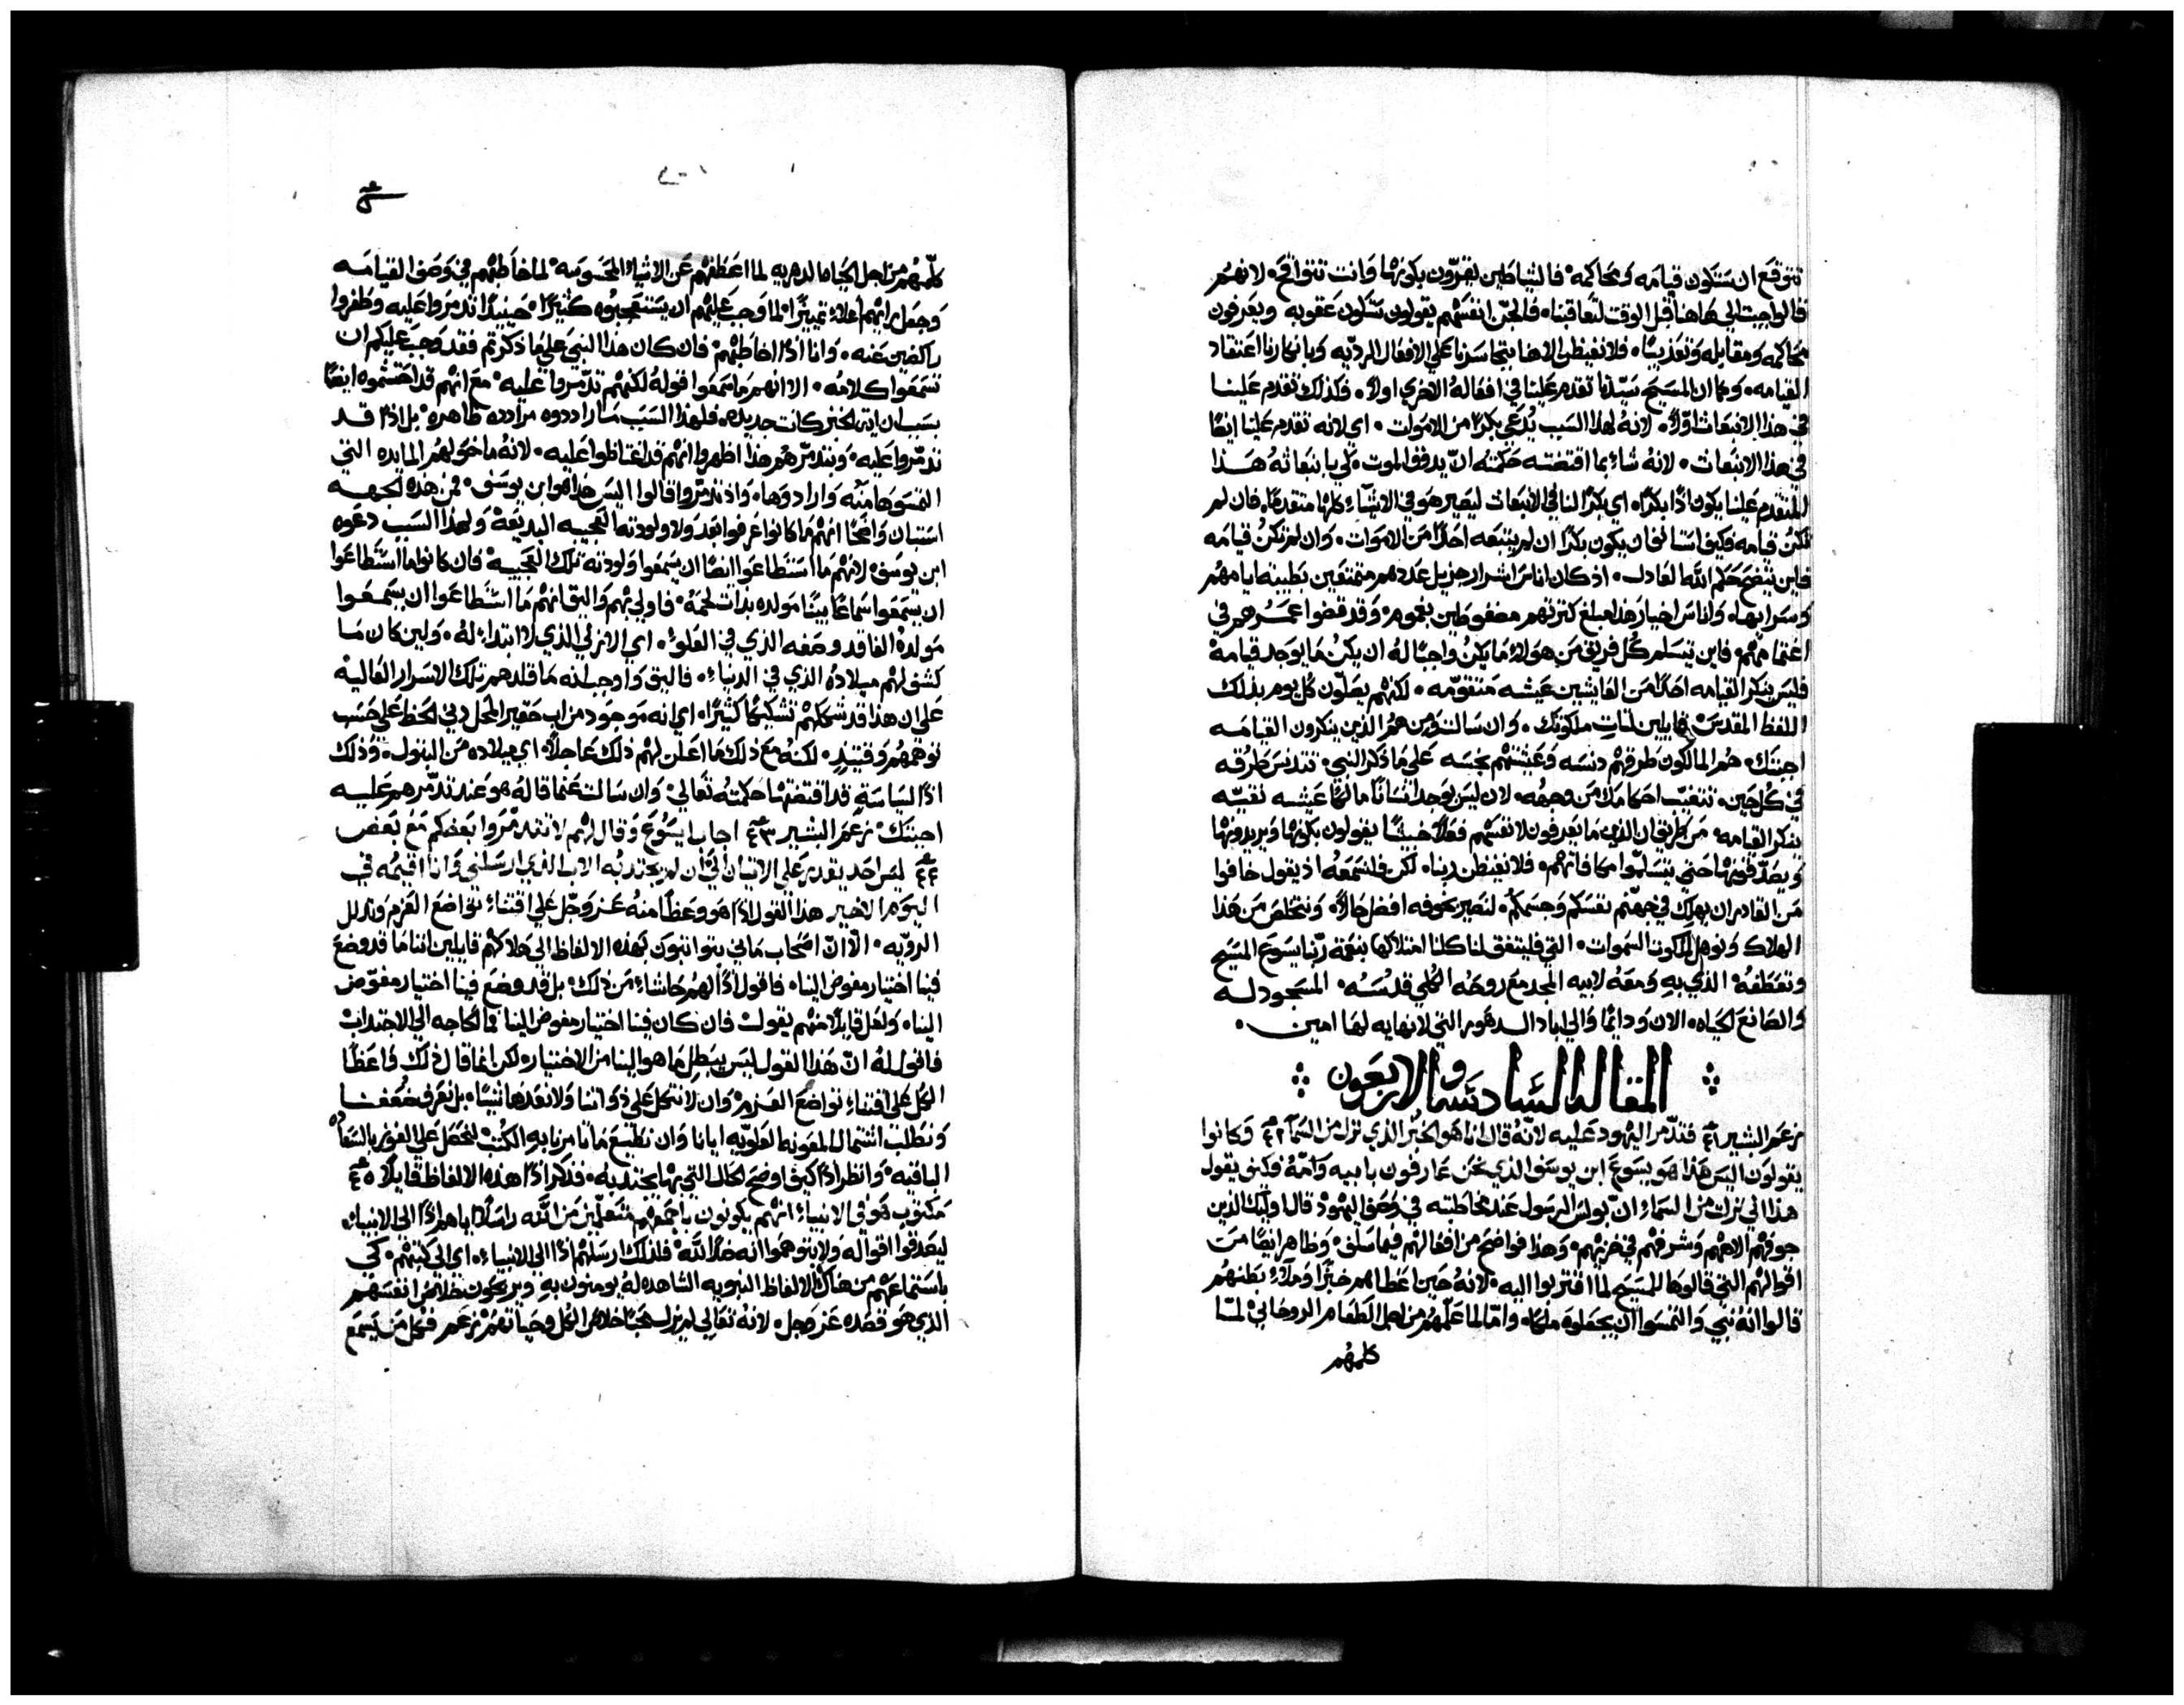 تتوقع ان ستكون قيامه ومحاكمه فالشياطين يقرّون بكونها وانت تتواقح لانهم
قالوا جيت الى هاهنا قبل الوقت لتعاقبنا فالجن انفسهم يقولون ستكون عقوبه ويعرفون
محاكمه ومقابله وتعذيبًا فلا نغيظن الاهنا بتجاسرنا على الافعال الرديّه وبانكارنا اعتقاد
القيامه وكما ان المسيح سيّدنا تقدم علينا في افعاله الاخرى اولاً فكذلك تقدم علينا
في هذا الانبعاث اوّلاً لانه لهذا السبب يُدعى بكرًا من الاموات اي لانه تقدم علينا ايضًا
في هذا الانبعاث لانه شاء بما اقتضته حكمته ان يدفق الموت لكي بانبعاثه هذا
المتقدم علينا يكون اذًا بكرًا اي بكرًا لنا في الانبعاث ليصير هو في الاشياء كلها متقدمًا فان لم
تكن قيامه فكيف اتسا لغ ان يكون بكرًا ان لم يتبعه احدًا من الاموات وان لم تكن قيامه
فاين يتضح حكم الله العادل اذ كان اناس اشرار جزيل عددهم متمتعين بطيبة ايامهم
وسرابها واناس اخيار هذا مبلغ كثرتهم مضغوطين بغموم وقد قضوا عمرهم في
اغتمامهم فاين تسلم كل فريق من هولاء ما يكن واجبًا له ان يكن ما يوجد قيامه
فليس ينكر القيامه احدًا من العايشين عيشه متقومه لكنهم يصلّون كل يوم بذلك
اللفظ المقدس قايلين لتات ملكوتك وان سالت ومن هم الذين ينكرون القيامه
اجبتك هم المالكون طرقهم دنسه وعيشتهم نجسه على ما ذكر النبي تتدنس طرقه
في كل حين تتغيّب احكامك من وجهه لان ليس يوجد انسانًا مالكًا عيشه نقيّه
ينكر القيامه من طريق ان الذين ما يعرفون لانفسهم فعلاً خبيثًا يقولون بكونها ويريدونها
ويصدّقونها حتى يتسلموا مكافاتهم فلا نغيظن ربنا لكن فلنسمعه اذ يقول خافوا
من القادر ان يهلك في جهنّم نفسكم وجسمكم لنصير بخوفه افضل حالاً ونتخلص من هذا
الهلاك ونوهل لملكوت السموات التي فليتفق لنا كلنا امتلاكها بنعمة ربّنا يسوع المسيح
وتعطفه الذي به ومعه لابيه المجد مع روحه الكلي قدسه المسجود له
والصانع الحياه الان ودائمًا والى اباد الدهور التي لا نهايه لها امين
المقاله السادسه والاربعون
زعم البشير ٤١ فتذمّر اليهود عليه لانّه قال انا هو الخبز الذي نزل من السما ٤٢ وكانوا
يقولون اليس هذا هو يسوع ابن يوسف الذي نحن عارفون بابيه وامّه فكيف يقول
هذا اني نزلت من السماء ان بولس الرسول عند مخاطبته في وصف اليهود قال اوليك الذين
جوفهم الاههم وشرفهم في خزيهم وهذا فواضح من افعالهم فيما سلف وظاهر ايضًا من
اقوالهم التي قالوها للمسيح لما اقتربوا اليه لانه حين اعطاهم خبزًا وملاء بطنهم
قالوا انه نبي والتمسوا ان يجعلوه ملكًا وامّا لما علّمهم من اجل الطعام الروحاني لمّا
كلمهم
كلّمهم من اجل الحياه الدهريه لما اعطفهم عن الاشياء المحسوسه لما خاطبهم في وصف القيامه
وجعل رايهم اعلاء تمييزًا لما وجب عليهم ان يستعجبوه كثيرًا حينيذٍ تذمروا عليه وطفروا
راكضين عنه وانا اذًا اخاطبهم فان كان هذا النبي على ما ذكرتم فقد وجب عليكم ان
تسمعوا كلامه الا انهم ما سمعوا قوله لكنهم تذمّروا عليه مع انهم قد احتشموه ايضًا
بسبب ان اية الخبز كانت جديده فلهذا السبب ما راددوه مراددة ظاهره بل اذًا قد
تذمّروا عليه وبتذمّرهم هذا اظهروا انهم قد اغتاظوا عليه لانه ما خولهم المايده التي
التمسوها منه وارادوها واذ تذمّروا قالوا اليس هذا هو ابن يوسف فمن هذه الجهه
استبان واضحًا انهم ما كانوا عرفوا بعد ولا ولودته العجيبه البديعه ولهذا السبب دعوه
ابن يوسف لانهم ما استطاعوا ايضًا ان يسمعوا ولودته تلك العجيبه فان كانوا ما استطاعوا
ان يسمعوا سماعًا بينًا مولده بذات لحمه فاولى بهم واليق انهم ما استطاعوا ان يسمعوا
مولده الفاقد وصفه الذي في العلوّ اي الازلي الذي لا ابتداء له ولين كان ما
كشف لهم ميلاده الذي في الدنياء فاليق واوجب انه ما قلدهم تلك الاسرار العاليه
على ان هذا قد شككهم تشكيكًا كثيرًا اي انه موجود من اب حقير المحل دني الحظ على حسب
توهمهم وقتيذٍ لكنه مع ذلك ما اعلن لهم ذلك عاجلاً اي ميلاده من البتول وذلك
اذًا لسياسةٍ قد اقتضتها حكمته تعالى وان سالت عمّا قاله هو عند تذمّرهم عليه
اجبتك زعم البشير ٤٣ اجاب يسوع وقال لهم لا تتذمّروا بعضكم مع بعض
٤٤ ليس احد يقدر على الاتيان اليّ ان لم يجتذبه الاب الذي ارسلني وانا اقيمه في
اليوم الاخير هذا القول اذًا هو وعظًا منه عز وجل على اقتناء تواضع العزم وتذلل
الرويه الّا انّ اصحاب ماني يتواثبون بهذه الالفاظ الى هلاكهم قايلين اننا ما قد وضع
فينا اختيار مفوض الينا فاقول اذًا لهم حاشاء من ذلك بل قد وضع فينا اختيار مفوّض
الينا ولعل قايلاً منهم يقول فان كان فينا اختيار مفوض الينا فما الحاجه الى الاجتذاب
فاقول له انّ هذا القول ليس يبطل ما هو الينا من الاختيار لكن انما قال ذلك واعظًا
الكل على اقتناء تواضع العزم وان لا نتكل على ذواتنا ولا نعدها شيًا بل نعرف ضعفنا
ونطلب اشتمال المعونه العلويّه ايانا وان نطيع ما تامرنا به الكتب لنحصل على الفوز بالسعاده
الباقيه وانظر اذًا كيف اوضح الحال التي بها يجتذبه فذكر اذًا هذه الالفاظ قايلاً ٤٥
مكتوب هو في الانبياء انهم يكونون باجمعهم متعلّمين من الله راسلاً اياهم اذًا الى الانبياء
ليصدقوا اقواله ولا يتوهموا انه ضدًا لله فلذلك ارسلهم اذًا الى الانبياء اي الى كتبهم كي
باستماعهم من هناك الالفاظ النبويه الشاهده له يومنون به ويربحون خلاص انفسهم
الذي هو قصده عز وجل لانه تعالى لم يزل محبًا خلاص الكل وحياتهم زعم فكل من يسمع